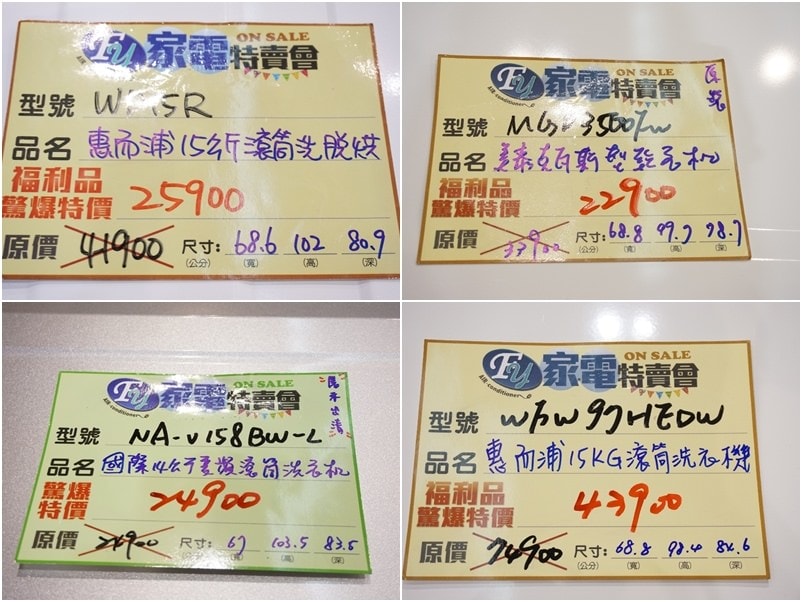 FU 家電特賣會 ON SALE
AIR conditioner
型號
品名 惠而浦15公斤滾筒洗脫烘
福利品
驚爆特價 25900
原價 41900 尺寸: 68.6 102 80.9
(公分) (寬) (高) (深)
FU 家電特賣會 ON SALE
AIR conditioner
型號
品名 美泰克瓦斯型乾衣机
福利品
驚爆特價 22900
原價 尺寸: 68.8 99.7 78.7
(公分) (寬) (高) (深)
FU 家電特賣會 ON SALE
AIR conditioner
型號 NA-V158BW-L
品名 國際14公斤變頻滾筒洗衣机
驚爆
特價 24900
原價 尺寸: 67 103.5 83.5
(公分) (寬) (高) (深)
FU 家電特賣會 ON SALE
AIR conditioner
型號 WFW97HEDW
品名 惠而浦15KG滾筒洗衣機
福利品
驚爆特價 43900
原價 74900 尺寸: 68.8 98.4 84.6
(公分) (寬) (高) (深)